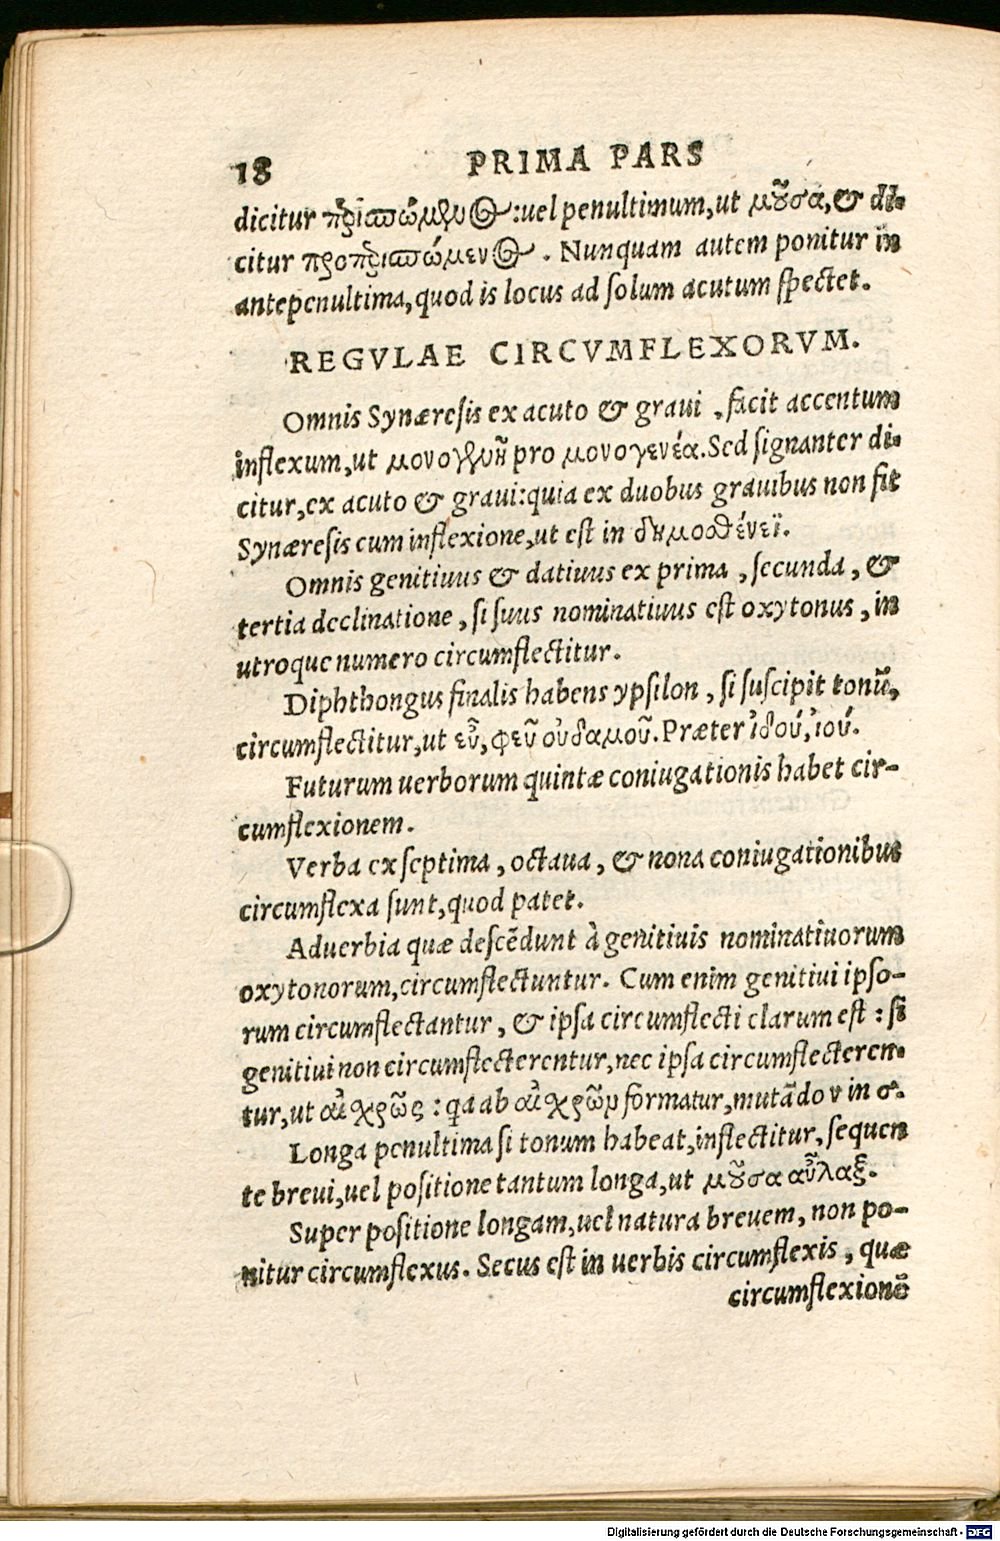 18 PRIMA PARS
dicitur περισπώμενος: uel penultimum, ut μοῦσα, & di-
citur προπερισπώμενος. Nunquam autem ponitur in
antepenultima, quod is locus ad solum acutum spectet.
REGVLAE CIRCVMFLEXORVM.
Omnis Synæresis ex acuto & graui, facit accentum
inflexum, ut μονογενῆ pro μονογενέα. Sed signanter di-
citur, ex acuto & graui: quia ex duobus grauibus non fit
Synæresis cum inflexione, ut est in δημοσθένεϊ.
Omnis genitiuus & datiuus ex prima, secunda, &
tertia declinatione, si suus nominatiuus est oxytonus, in
utroque numero circumflectitur.
Diphthongus finalis habens ypsilon, si suscipit tonũ,
circumflectitur, ut εὖ, φεῦ οὐδαμοῦ. Præter ἰδού, ἰού.
Futurum uerborum quintæ coniugationis habet cir-
cumflexionem.
Verba ex septima, octaua, & nona coniugationibus
circumflexa sunt, quod patet.
Aduerbia quæ descẽdunt à genitiuis nominatiuorum
oxytonorum, circumflectuntur. Cum enim genitiui ipso-
rum circumflectantur, & ipsa circumflecti clarum est: si
genitiui non circumflecterentur, nec ipsa circumflecteren-
tur, ut αἰχρῶς: qa ab αἰχρῶν formatur, mutãdo ν in σ.
Longa penultima si tonum habeat, inflectitur, sequen
te breui, uel positione tantum longa, ut μοῦσα αὖλαξ.
Super positione longam, uel natura breuem, non po-
nitur circumflexus. Secus est in uerbis circumflexis, quæ
circumflexionẽ
Digitalisierung gefördert durch die Deutsche Forschungsgemeinschaft - DFG